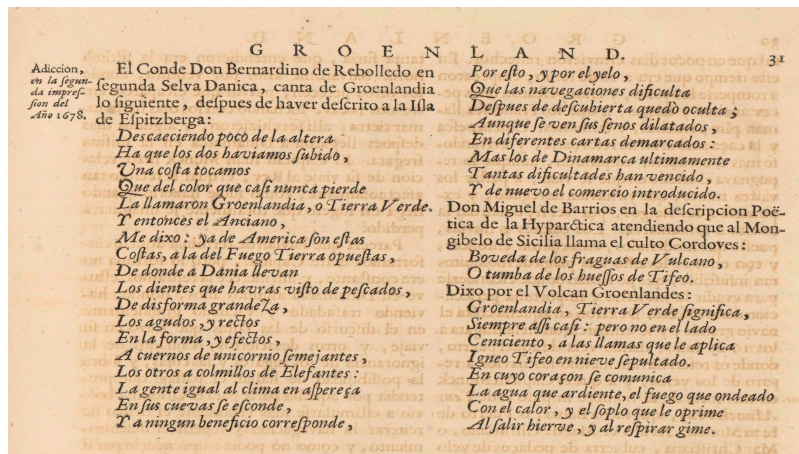 GROENLAND.
31
Adiccion,
en la segun-
da impres-
sion del
Año 1678.
El Conde Don Bernardino de Rebolledo en
segunda Selva Danica, canta de Groenlandia
lo siguiente, despues de haver descrito a la Isla
de Espitzberga:
Descaeciendo poco de la altera
Ha que los dos haviamos subido,
Una costa tocamos
Que del color que casi nunca pierde
La llamaron Groenlandia, o Tierra Verde.
Y entonces el Anciano,
Me dixo: ya de America son estas
Costas, a la del Fuego Tierra opuestas,
De donde à Dània llevan
Los dientes que havras visto de pescados,
De disforma grandeza,
Los agudos, y rectos
En la forma, y efectos,
A cuernos de unicornio semejantes,
Los otros a colmillos de Elefantes:
La gente igual al clima en aspereça
En sus cuevas se esconde,
Y a ningun beneficio corresponde,
Por esto, y por el yelo,
Que las navegaciones dificulta
Despues de descubierta quedò oculta;
Aunque se ven sus senos dilatados,
En diferentes cartas demarcados:
Mas los de Dinamarca ultimamente
Tantas dificultades han vencido,
Y de nuevo el comercio introducido.
Don Miguel de Barrios en la descripcion Poë-
tica de la Hyparctica atendiendo que al Mon-
gibelo de Sicilia llama el culto Cordoves:
Boveda de los fraguas de Vulcano,
O tumba de los huessos de Tifeo.
Dixo por el Volcan Groenlandes:
Groenlandia, Tierra Verde significa,
Siempre assi casi: pero no en el lado
Ceniciento, a las llamas que le aplica
Igneo Tifeo en nieve sepultado.
En cuyo coraçon se comunica
La agua que ardiente, el fuego que ondeado
Con el calor, y el soplo que le oprime
Al salir hierve, y al respirar gime.